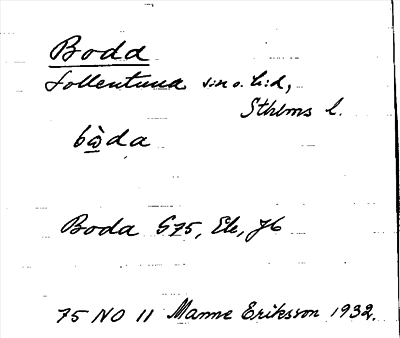 Boda
Sollentuna sn o. hd,
Sthlms l.
bo̠̊̀da
Boda G75, Ek, J6
75 NO 11 Manne Eriksson 1932.